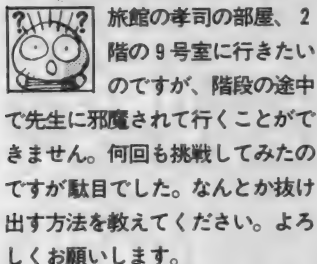 ? ?
旅館の孝司の部屋、2
階の9号室に行きたい
のですが、階段の途中
で先生に邪魔されて行くことがで
きません。何回も挑戦してみたの
ですが駄目でした。なんとか抜け
出す方法を教えてください。よろ
しくお願いします。